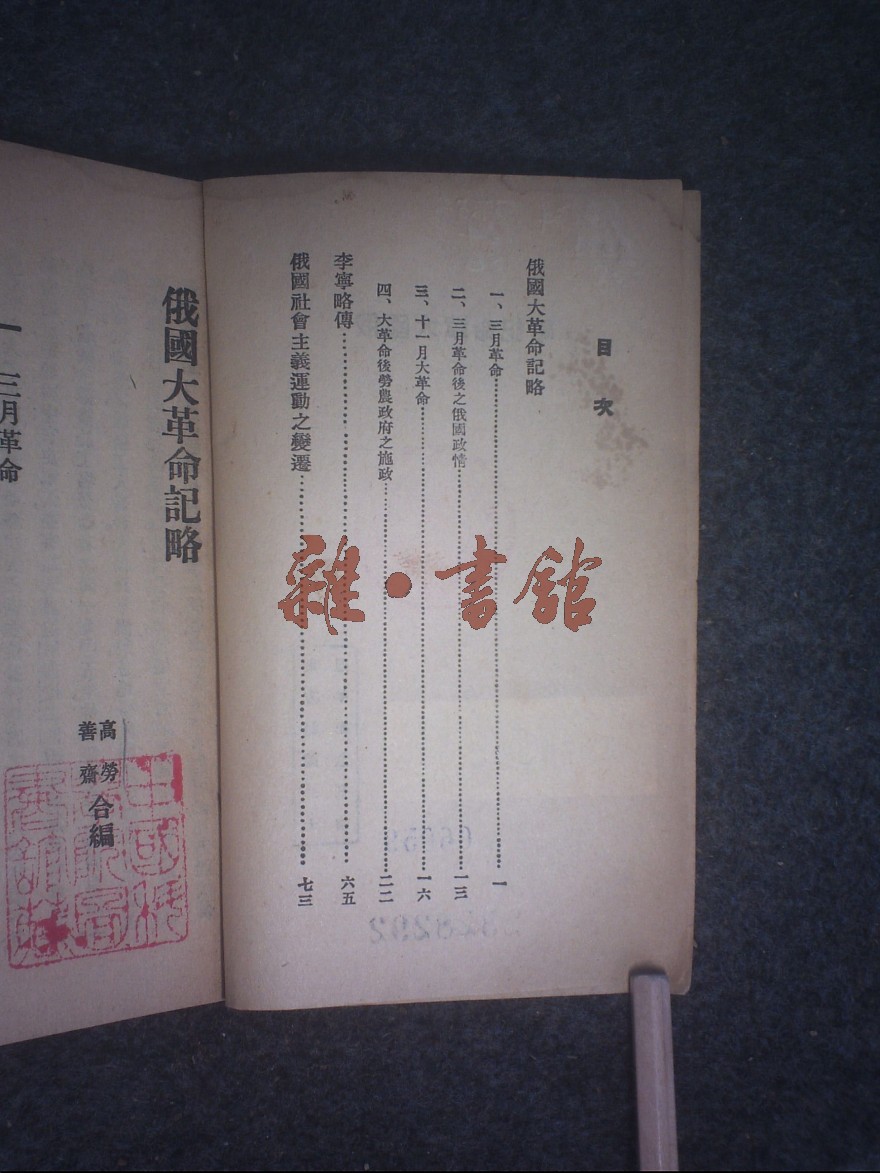 目次
俄國大革命記略
一、三月革命……一
二、三月革命後之俄國政情……一三
三、十一月大革命……一六
四、大革命後勞農政府之施政……二二
李寧略傳……六五
俄國社會主義運動之變遷……七三
俄國大革命記略
高勞
善齋
合編
一 三月革命
雜·書館